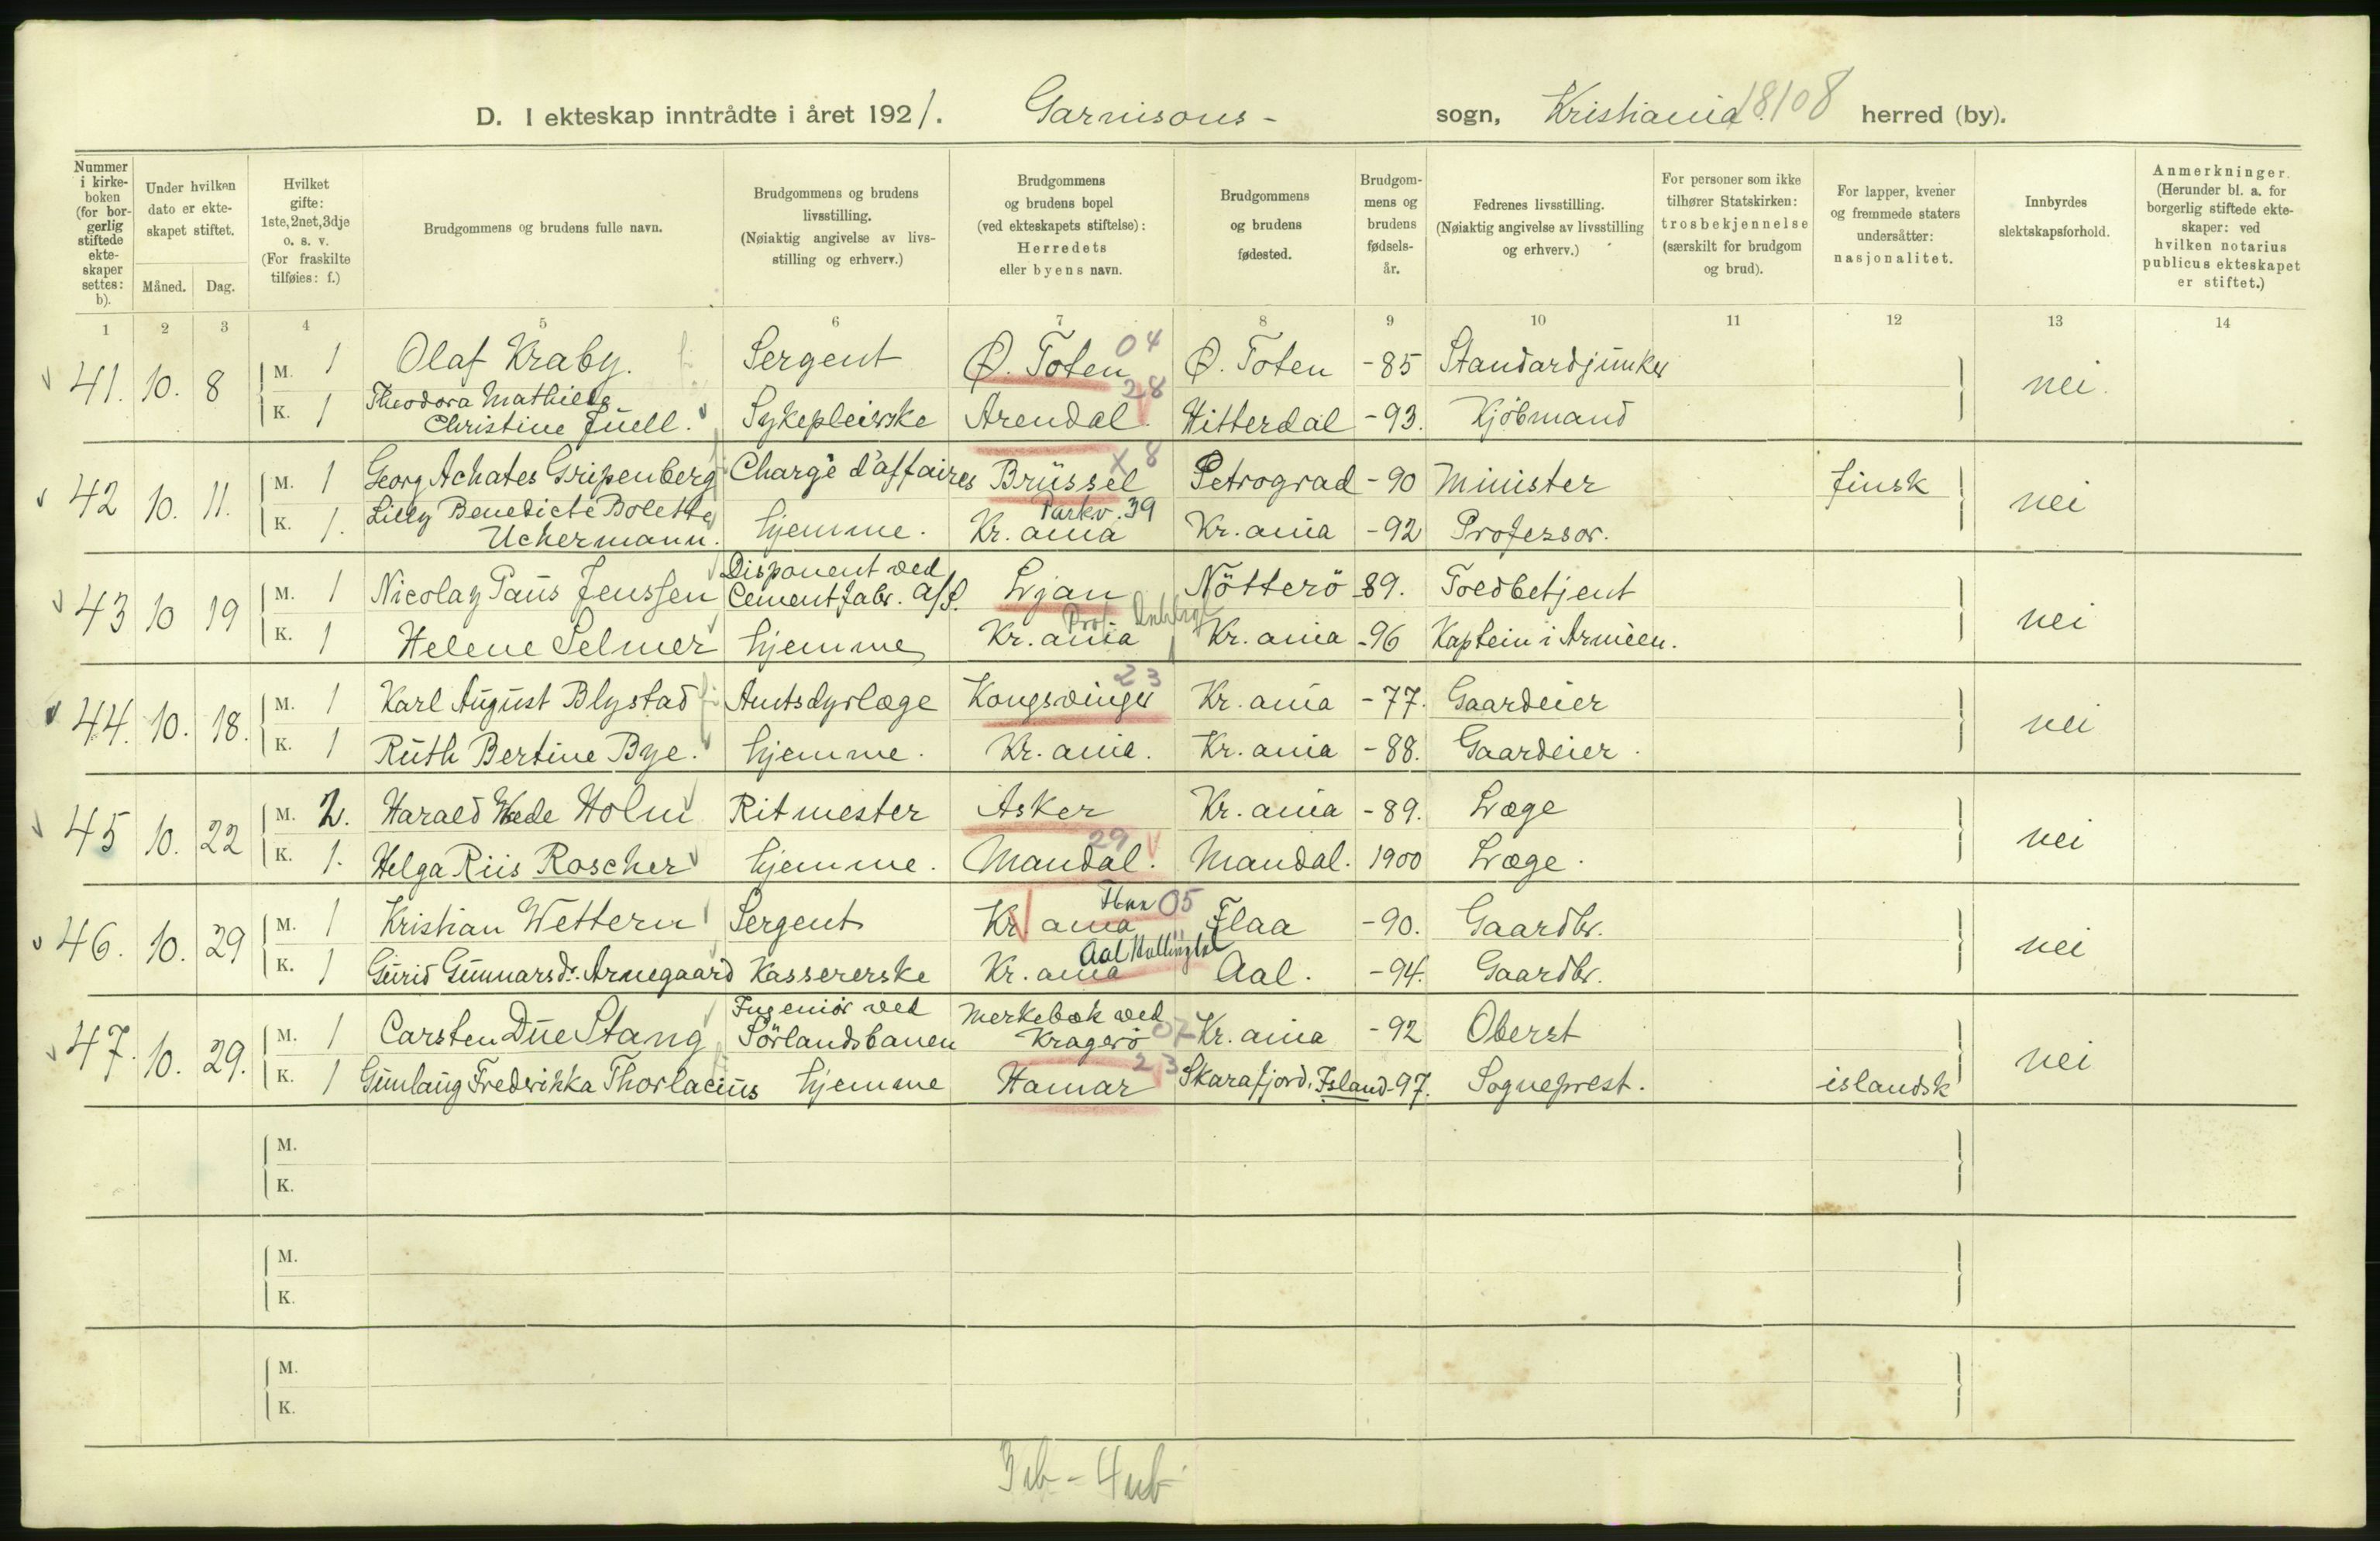 D. I ekteskap inntrådte i året 1921. Garnisons- sogn, Kristiania 18108 herred (by).
Nummer i kirkeboken (for borgerlig stiftede ekteskaper settes: b).
Under hvilken dato er ekteskapet stiftet.
Måned. Dag.
Hvilket gifte: 1ste, 2net, 3dje o. s. v. (For fraskilte tilføies: f.)
Brudgommens og brudens fulle navn.
Brudgommens og brudens livsstilling. (Nøiaktig angivelse av livsstilling og erhverv.)
Brudgommens og brudens bopel (ved ekteskapets stiftelse): Herredets eller byens navn.
Brudgommens og brudens fødested.
Brudgommens og brudens fødselsår.
Fedrenes livsstilling. (Nøiaktig angivelse av livsstilling og erhverv.)
For personer som ikke tilhører Statskirken: trosbekjennelse (særskilt for brudgom og brud).
For lapper, kvener og fremmede staters undersåtter: nasjonalitet.
Innbyrdes slektskapsforhold.
Anmerkninger. (Herunder bl. a. for borgerlig stiftede ekteskaper: ved hvilken notarius publicus ekteskapet er stiftet.)
1 2 3 4 5 6 7 8 9 10 11 12 13 14
41. 10. 8 M. 1 Olaf Kraby. Sergent Ø. Toten 04 Ø. Toten -85 Standardjunker nei.
K. 1 Theodora Mathilde Christine Juell. Sykepleiske Arendal. 28 Hitterdal -93. Kjöbmand
42 10. 11. M. 1 Georg Achates Gripenberg Chargé d'affaires Brüssel x 8 Petrograd -90 Minister finsk nei
K. 1. Lilly Benedicte Bolette Uchermann. hjemme. Parkv. 39 Kr.ania Kr.ania -92 Professor.
43 10 19 M. 1 Nicolay Paus Jenssen Disponent ved Cementfabr. A/S. Ljan Nötterö -89. Toldbetjent nei
K. 1 Helene Selmer hjemme Kr.ania Kr.ania -96 Kaptein i Arméen.
44. 10. 18. M. 1 Karl August Blystad Amtsdyrlæge Kongsvinger 23 Kr.ania -77. Gaardeier nei
K. 1 Ruth Bertine Bye. hjemme. Kr.ania. Kr.ania -88. Gaardeier.
45 10. 22 M. 2. Harald Wede Holm Ritmester Asker Kr.ania -89. Læge nei
K. 1. Helga Riis Roscher hjemme. Mandal. 29 Mandal. 1900 Læge.
46. 10. 29 M. 1 Kristian Wettern Sergent Kr.ania 05 Flaa -90. Gaardbr. nei
K. 1 Gurid Gunnarsdr. Arnegaard Kassererske Kr.ania Aal Hallingdal Aal. -94. Gaardbr.
47. 10. 29. M. 1 Carsten Due Stang Ingeniör ved Sörlandsbanen Merkebæk ved Kragerö 07 Kr.ania -92 Oberst nei
K. 1 Gunlaug Fredrikka Thorlacius hjemme Hamar 23 Skarafjord, Island -97. Sogneprest. islandsk
M.
K.
M.
K.
M.
K.